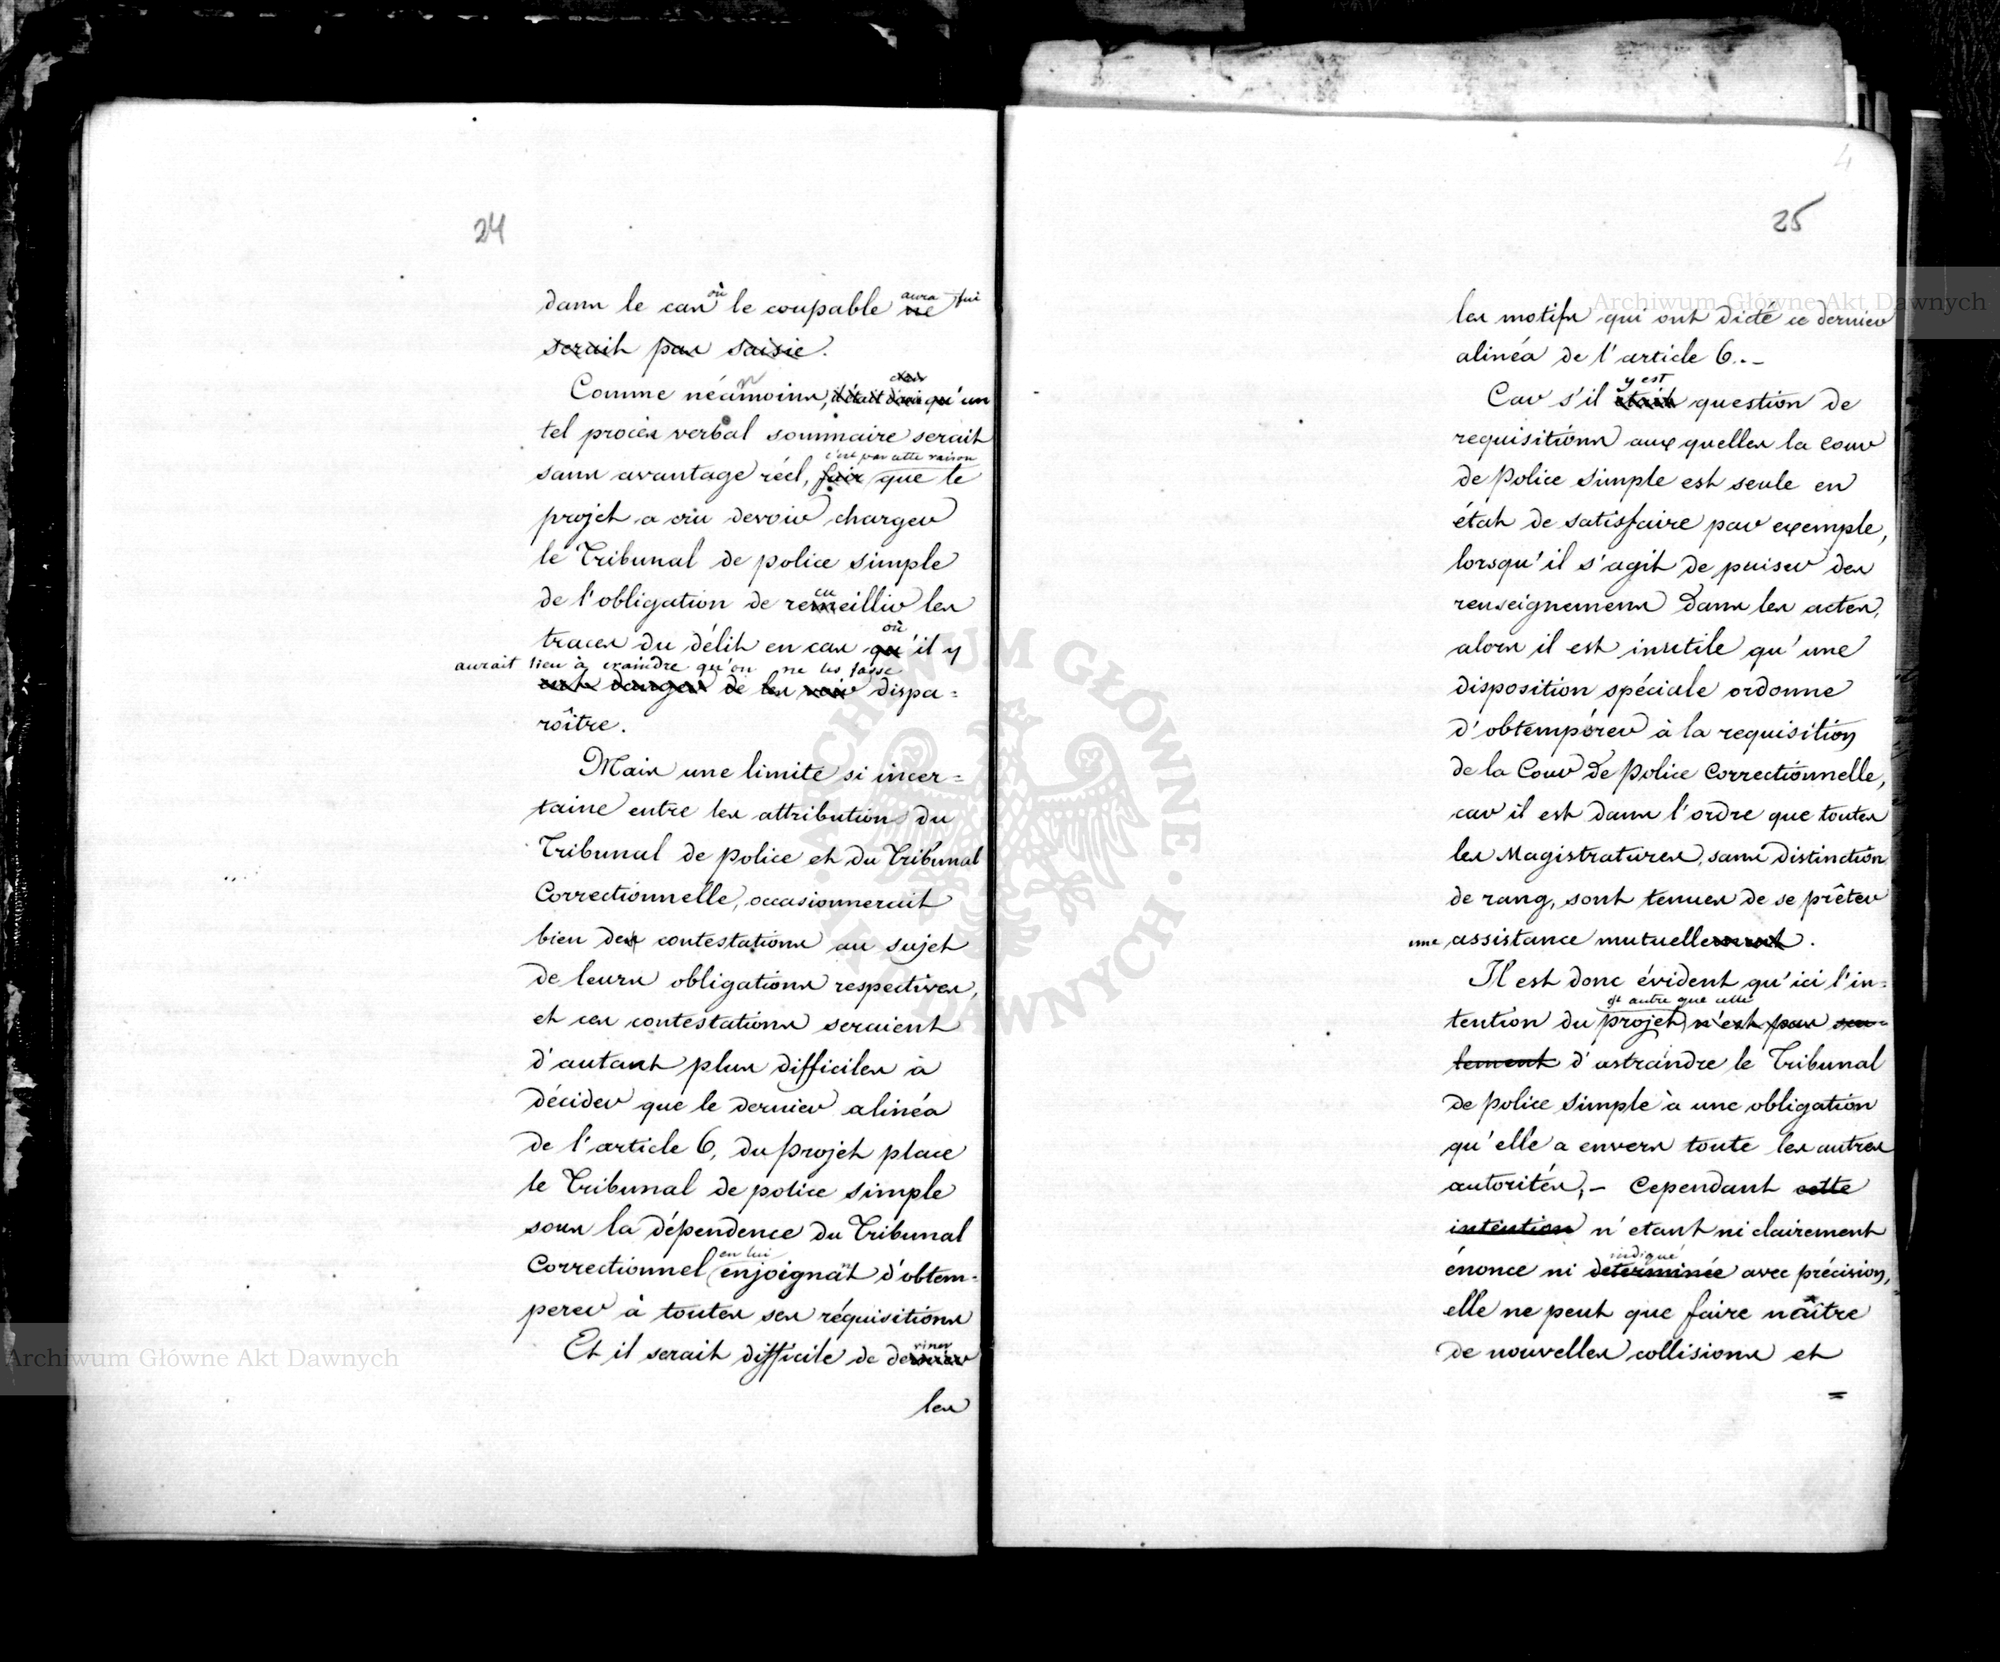 24
dans le cas où le coupable ne aura fui
serait pas saisie.
Comme néanmoins, qu'un
tel procès verbal sommaire serait
c'est par cette raison
sans avantage réel, que le
projet a crû devoir charger
le Tribunal de police simple
de l'obligation de recueillir les
traces du délit en cas où il y
aurait lieu à craindre qu'on ne les fasse
danger de les voir dispa=
roître.
Mais une limite si incer=
taine entre les attributions du
Tribunal de police et du Tribunal
Correctionnelle, occasionnerait
bien des contestations au sujet
de leurs obligations respectives,
et ces contestations seraient
d'autant plus difficiles à
décider que le dernier alinéa
de l'article 6, du projet place
le Tribunal de police simple
sous la dépendence du Tribunal
en lui
Correctionnel enjoignant d'obtem=
perer à toutes ses réquisitions
Et il serait difficile de deviner
les
4
25
les motifs qui ont dicté ce dernier
alinéa de l'article 6.-
y est
Car s'il était question de
requisitions aux quelles la Cour
de Police Simple est seule en
état de satisfaire par exemple,
lorsqu'il s'agit de puiser des
renseignemens dans les actes,
alors il est inutile qu'une
disposition spéciale ordonne
d'obtempérer à la requisition
de la Cour de Police Correctionnelle,
car il est dans l'ordre que toutes
les Magistratures, sans distinction
de rang, sont tenues de se prêter
une assistance mutuellement.
Il est donc évident qu'ici l'in=
est autre que celle
tention du projet n'est pas seu=
lement d'astraindre le Tribunal
de police simple à une obligation
qu'elle a envers toute les autres
autorités,- Cependant cette
intention n'etant ni clairement
indiqué
énoncé ni determinée avec précision,
elle ne peut que faire naître
de nouvelles collisions et
=
Archiwum Główne Akt Dawnych
Archiwum Główne Akt Dawnych
ARCHIWUM GŁÓWNE AKT DAWNYCH